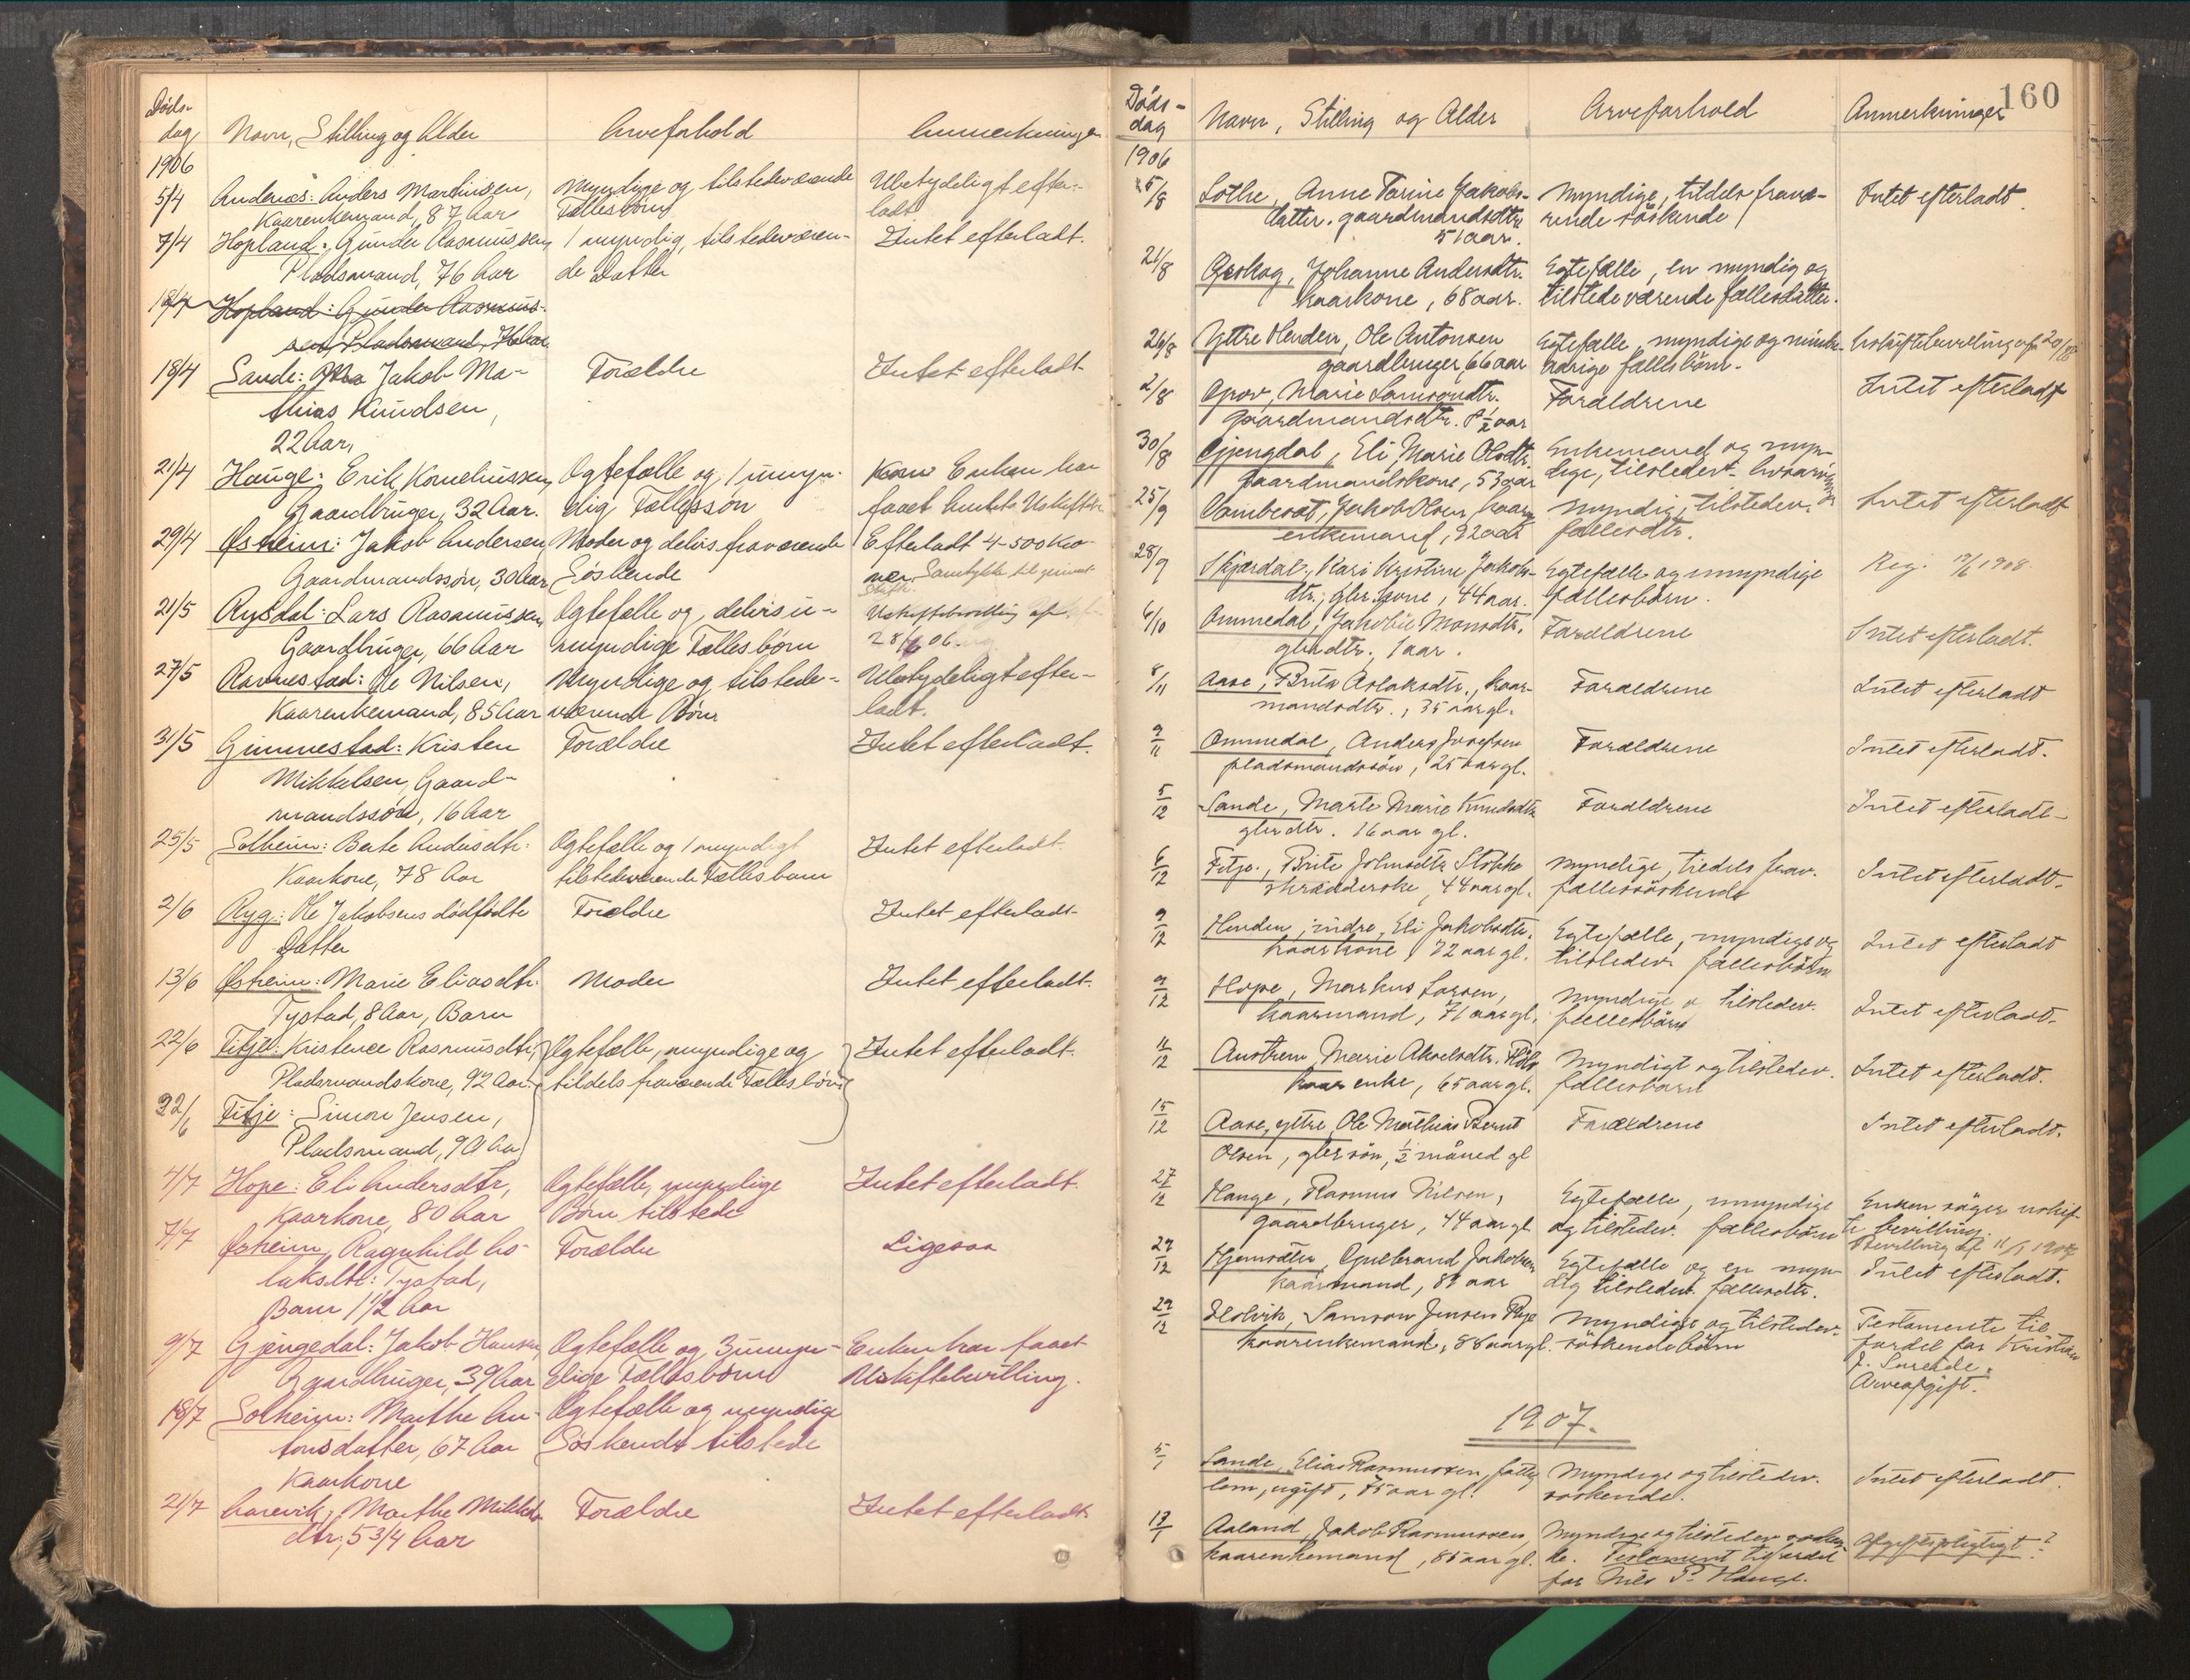 Døds-
dag Navn, Stilling og Alder Arveforhold Anmerkninger
1906
5/4 Andenæs: Anders Martinsen, Myndige og tilstedeværende Ubetydeligt efter-
Kaarenkemand, 87 Aar Fællesbørn ladt
7/4 Hopland: Gunder Rasmussen, 1 myndig, tilstedeværen- Intet efterladt.
Pladsmand, 76 Aar de Datter
18/4 Hopland: Gunder Rasmus-
sen, Pladsmand, 76 Aar
18/4 Sande: Jakob Ma- Forældre Intet efterladt
thias Knudsen,
22 Aar,
21/4 Hauge: Erik Korneliussen, Ægtefælle og 1 umyn- Enken har
Gaardbruger, 32 Aar. dig Fællessøn faaet Amtets Uskiftebv.
29/4 Øsheim: Jakob Andersen Moder og delvis fraværende Efterladt 4-500 Kro-
Gaardmandssøn, 30 Aar Søskende ner. Samtykke til privat
Skifte.
21/5 Rygdal: Lars Rasmussen, Ægtefælle og, delvis u- Uskiftebevilling af
Gaardbruger, 66 Aar myndige Fællesbørn 28/6 06.
27/5 Ravnestad: Ole Nilsen, Myndige og tilstede- Ubetydeligt efter-
Kaarenkemand, 85 Aar værende Børn ladt.
31/5 Gimmestad: Kristen Forældre Intet efterladt.
Mikkelsen, Gaard-
mandssøn, 16 Aar
25/5 Solheim: Berte Andersdtr. Ægtefælle og 1 myndigt Intet efterladt.
Kaarkone, 78 Aar tilstedeværende Fællesbarn
2/6 Ryg: Ole Jakobsens dødfødte Forældre Intet efterladt
Datter
13/6 Øsheim: Marie Eliasdtr. Moder Intet efterladt.
Tystad, 8 Aar, Barn
22/6 Fitje: Kristence Rasmusdtr., Ægtefælle, myndige og Intet efterladt.
Pladsmandskone, 92 Aar tildels fraværende Fællesbørn
22/6 Fitje: Simon Jensen,
Pladsmand, 90 Aar
4/7 Hope: Eli Andersdtr, Ægtefælle, myndige Intet efterladt
Kaarkone, 80 Aar Børn tilstede
7/7 Øsheim, Ragnhild As- Forældre Ligesaa
laksdtr: Tystad,
Barn 1 1/2 Aar
9/7 Gjengedal: Jakob Hansen, Ægtefælle og 3 umyn- Enken har faaet
Gaardbruger, 39 Aar dige Fællesbørn Uskiftebevilling.
18/7 Solheim: Marthe An- Ægtefælle og myndige
tonsdatter, 67 Aar Søskende tilstede
Kaarkone
21/7 Aarevik; Marthe Mikkels- Forældre Intet efterladt
dtr., 5 3/4 Aar
160
Døds-
dag Navn, Stilling og Alder Arveforhold Anmerkninger
1906
5/8 Lothe, Anne Tarine Jakobs- Myndige, tildels fravæ- Intet efterladt.
datter. gaardmandsdtr. rende söskende
51 aar.
21/8 Øyskog, Johanne Andersdtr. Egtefælle, en myndig og
kaarkone, 68 aar. tilstedeværende fællesdatter.
26/8 Yttre Henden, Ole Antonsen Egtefælle, myndige og minde- Uskiftebevilling af 20/
gaardbruger, 66 aar aarige fællesbörn.
2/8 Marie Samsondtr. Forældrene Intet efterladt
gaardmandsdtr. 8 1/2 aar
30/8 Gjengdal, Eli Marie Olsdtr. Enkemand og myn-
gaardmandskone, 53 aar dige, tilstedev.
25/9 Jakob Olsen, kaar- Myndig, tilstedev. Intet efterladt
enkemand, 92 aar fællesdtr.
28/9 Skjærdal, Kari Kristine Jakobs- Egtefælle og umyndige Reg. 12/6 1908.
dtr., gbr. kone, 44 aar. fællesbörn.
6/10 Ommedal, Jakobie Monsdtr. Forældrene Intet efterladt.
gbrdtr., 1 aar.
8/11 Aase, Brita Aslaksdtr., kaar- Forældrene Intet efterladt
mandsdtr., 35 aar gl.
9/11 Ommedal, Anders Josefsen Forældrene Intet efterladt.
pladsmandssön, 25 aar gl.
5/12 Sande, Marte Marie Knudsdtr. Forældrene Intet efterladt
gbrdtr. 16 aar gl.
6/12 Fitje, Brite Johnsdtr. Stokke Myndige, tildels frav. Intet efterladt.
skrædderske, 44 aar gl. fællessöskende
9/12 Henden, indre, Eli Jakobsdtr. Egtefælle, myndige og Intet efterladt
kaarkone, 72 aar gl. tilstedev. fællesbörn
9/12 Hope, Markus Larsen, Myndige o tilstedev. Intet efterladt.
kaarmand, 71 aar gl. fællesbörn
11/12 Austrem, Marie Akselsdtr. Myndigt og tilstedev. Intet efterladt.
enke, 65 aar gl. fællesbarn
15/12 Aase, yttre, Ole Mathias Bernt Forældrene Intet efterladt.
Olsen, gbr sön, 1/2 måned gl
27/12 Hauge, Rasmus Nilsen, Egtefælle, umyndige Enken söger uskif-
gaardbruger, 44 aar gl og tilstedev. fællesbörn te bevilling.
Bevilling af 11/1 1907
29/12 Gulbrand Jakobsen Egtefælle og en myn- Intet efterladt.
kaarmand, 85 aar dig tilstedev. fællesdtr.
29/12 Holvik, Samson Jensen Myndige og tilstedev. Testamente til
kaarenkemand, 86 aar gl. söskendebörn fordel for Kristian
J.
Arveafgift.
1907.
5/1 Sande, Elias Rasmussen, fattig Myndige og tilstedev. Intet efterladt.
lem, ugift, 75 aar gl. söskende.
13/1 Aaland, Jakob Rasmussen, Myndige og tilstedev. sösken- Afgiftspligtigt?
kaarenkemand, 85 aar gl. de. Testament til fordel
for Nils P. Hauge.